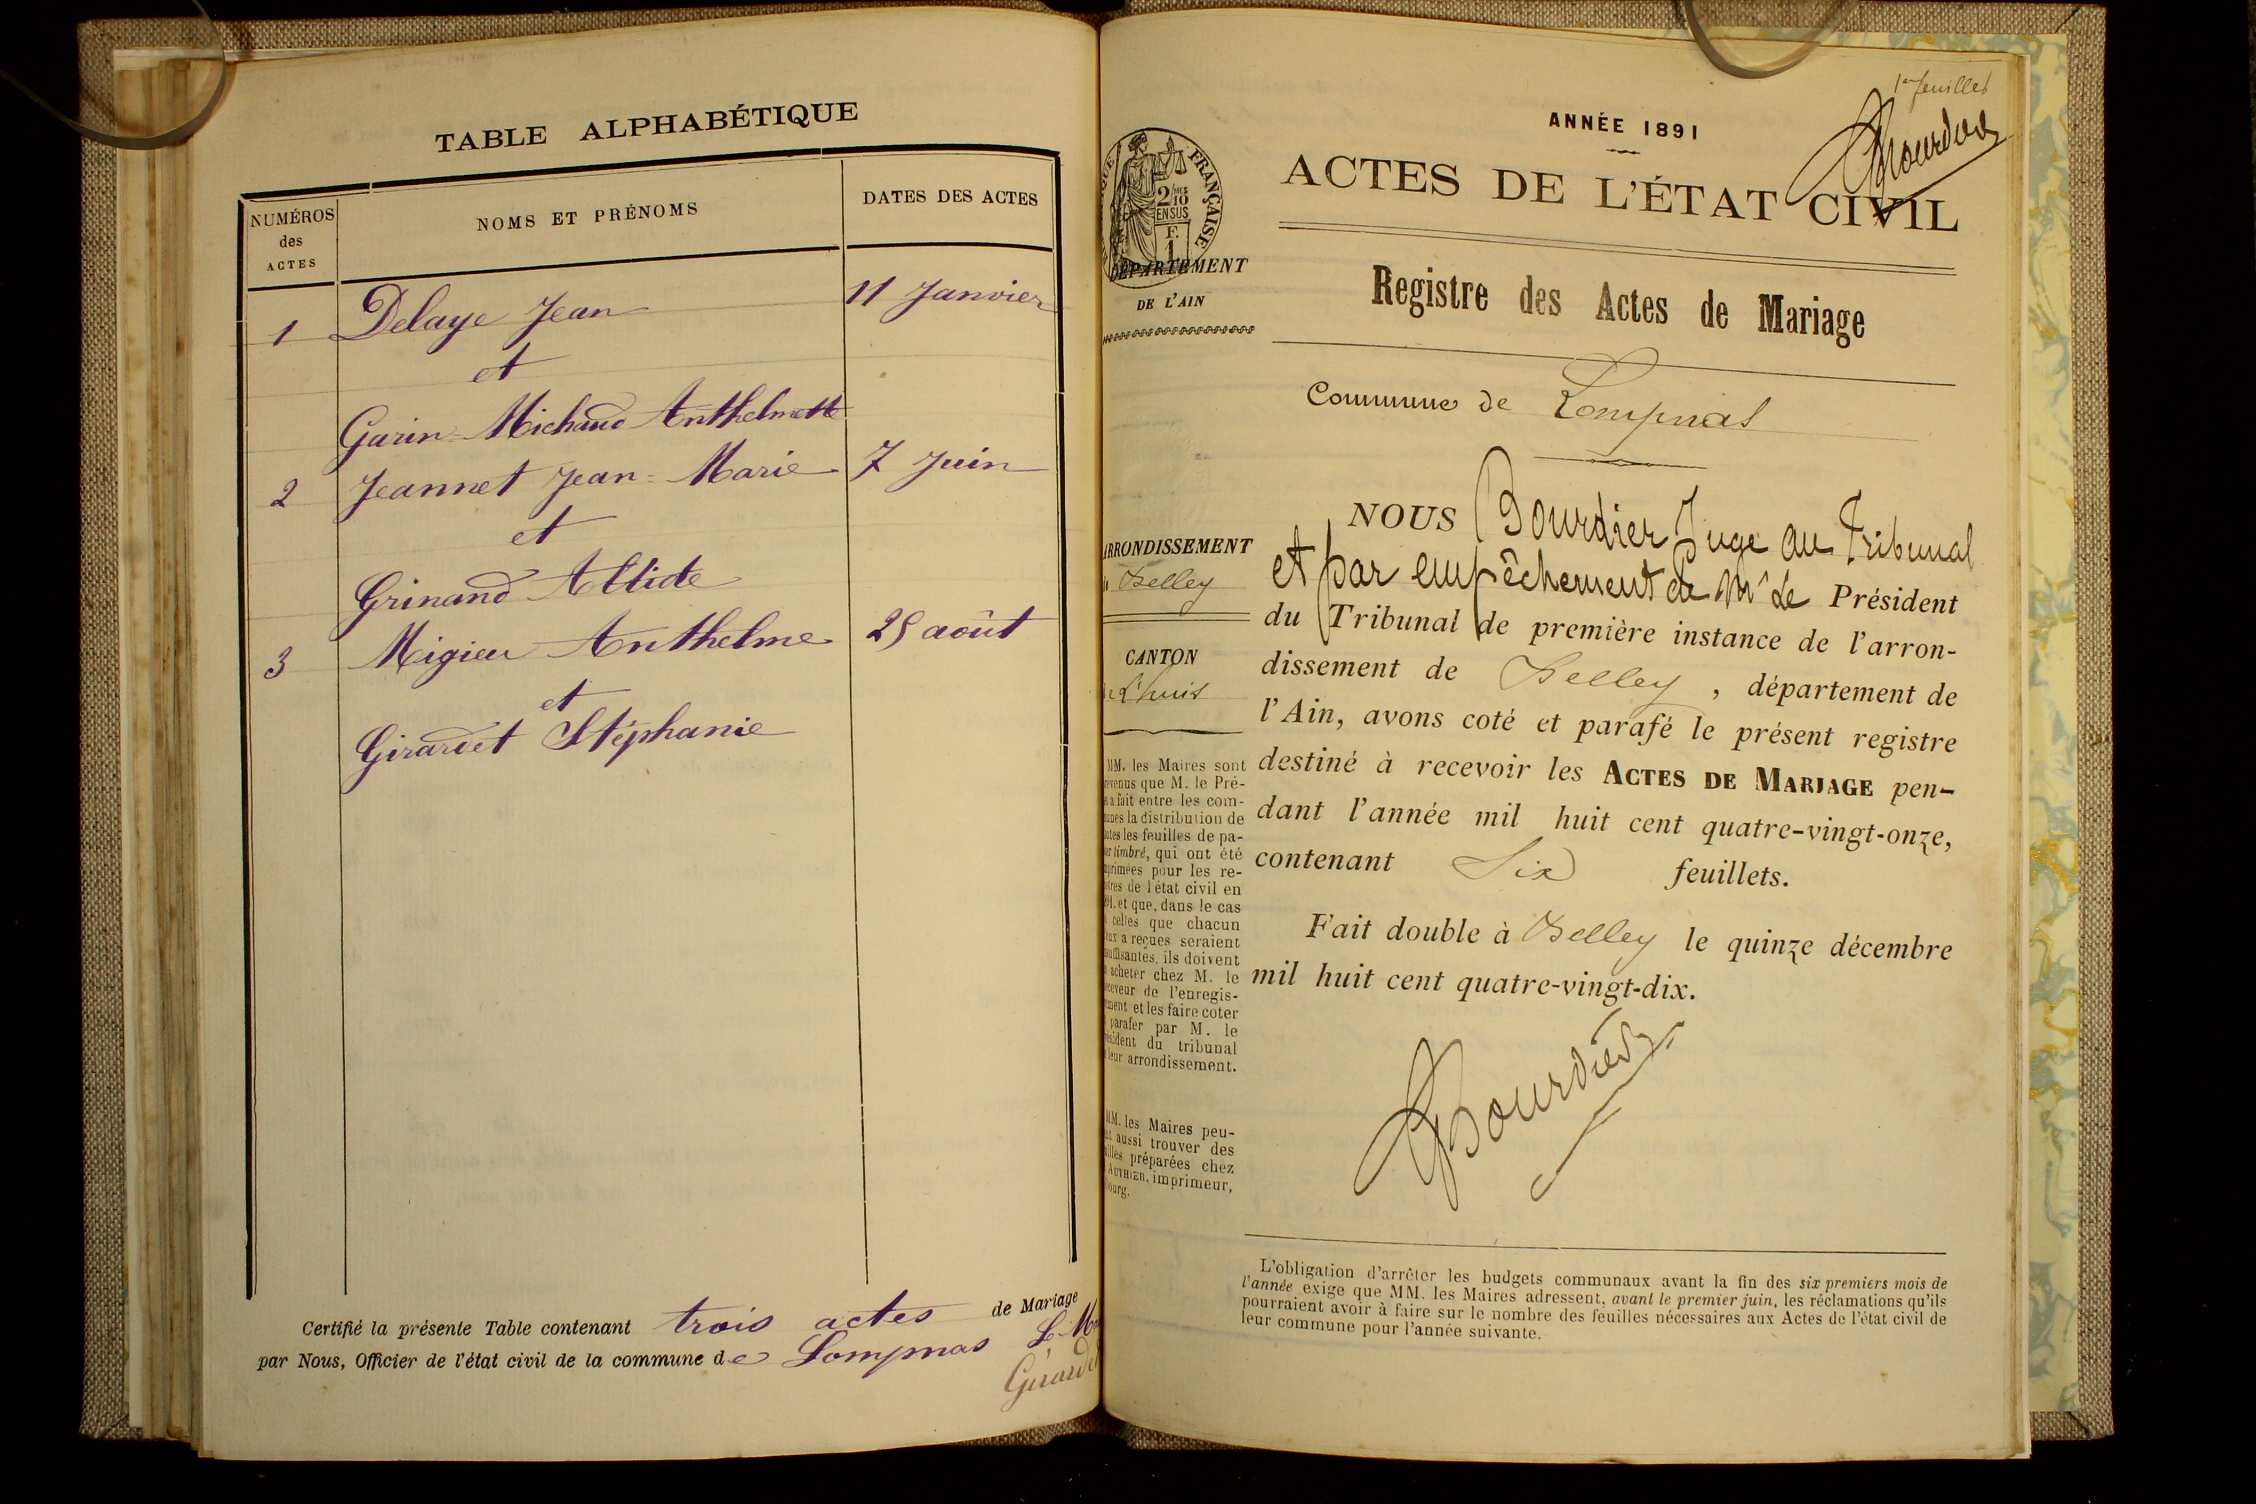 TABLE ALPHABÉTIQUE
NUMÉROS
des
ACTES
NOMS ET PRÉNOMS
DATES DES ACTES
1 Delaye Jean 11 Janvier
et
Garin-Michaud Anthelmette
2 Jeannet Jean-Marie 7 Juin
et
Grinand
3 Migieu Anthelme 25 août
et
Girardet Stéphanie
Certifié la présente Table contenant trois actes de Mariage
par Nous, Officier de l'état civil de la commune de Lompnas
1er feuillet
ANNÉE 1891
ACTES DE L'ÉTAT CIVIL
FRANÇAISE
DÉPARTEMENT
DE L'AIN
Registre des Actes de Mariage
Commune de Lompnas
ARRONDISSEMENT
Belley
CANTON
de L'huis
NOUS Bourdier Juge au Tribunal
et par empêchement de Mr Le Président
du Tribunal de première instance de l'arron-
dissement de Belley, département de
l'Ain, avons coté et parafé le présent registre
destiné à recevoir les ACTES DE MARIAGE pen-
dant l'année mil huit cent quatre-vingt-onze,
contenant Six feuillets.
Fait double à Belley le quinze décembre
mil huit cent quatre-vingt-dix.
Bourdier
MM. les Maires sont
que M. le Pré-
a fait entre les com-
la distribution de
les feuilles de pa-
timbré, qui ont été
pour les re-
de l'état civil en
et que, dans le cas
celles que chacun
a reçues seraient
ils doivent
acheter chez M. le
de l'enregis-
et les faire coter
parafer par M. le
du tribunal
leur arrondissement.
MM. les Maires peu-
aussi trouver des
préparées chez
imprimeur,
L'obligation d'arrêter les budgets communaux avant la fin des six premiers mois de
l'année exige que MM. les Maires adressent, avant le premier juin, les réclamations qu'ils
pourraient avoir à faire sur le nombre des feuilles nécessaires aux Actes de l'état civil de
leur commune pour l'année suivante.